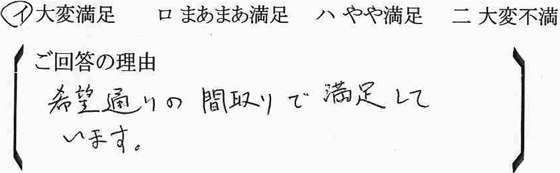 イ 大変満足 ロ まあまあ満足 ハ やや満足 ニ 大変不満
ご回答の理由
希望通りの間取りで満足して
います。